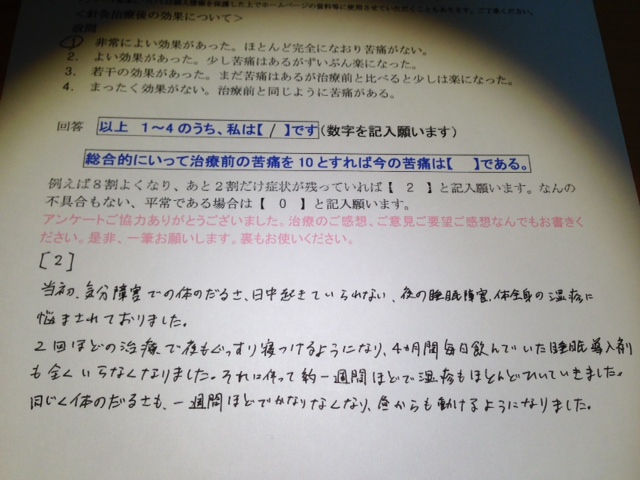 人情報を保護した上でホームページの資料等に使用させていただくこともあります。ご了承ください。
＜針灸治療後の効果について＞
質問
1. 非常によい効果があった。ほとんど完全になおり苦痛がない。
2. よい効果があった。少し苦痛はあるがずいぶん楽になった。
3. 若干の効果があった。まだ苦痛はあるが治療前と比べると少しは楽になった。
4. まったく効果がない。治療前と同じように苦痛がある。
回答 以上 1～4のうち、私は【 / 】です(数字を記入願います)
総合的にいって治療前の苦痛を10とすれば今の苦痛は【　】である。
例えば8割よくなり、あと2割だけ症状が残っていれば【 2 】と記入願います。なんの
不具合もない、平常である場合は【 0 】と記入願います。
アンケートご協力ありがとうございました。治療のご感想、ご意見ご要望ご感想なんでもお書きく
ださい。是非、一筆お願いします。裏もお使いください。
[2]
当初、気分障害での体のだるさ、日中起きていられない、夜の睡眠障害、体全身の湿疹に
悩まされておりました。
2回ほどの治療で夜もぐっすり寝つけるようになり、4ヵ月間毎日飲んでいた睡眠導入剤
も全くいらなくなりました。それに伴って約一週間ほどで湿疹もほとんどひいていきました。
同じく体のだるさも、一週間ほどでかなりなくなり、昼からも動けるようになりました。